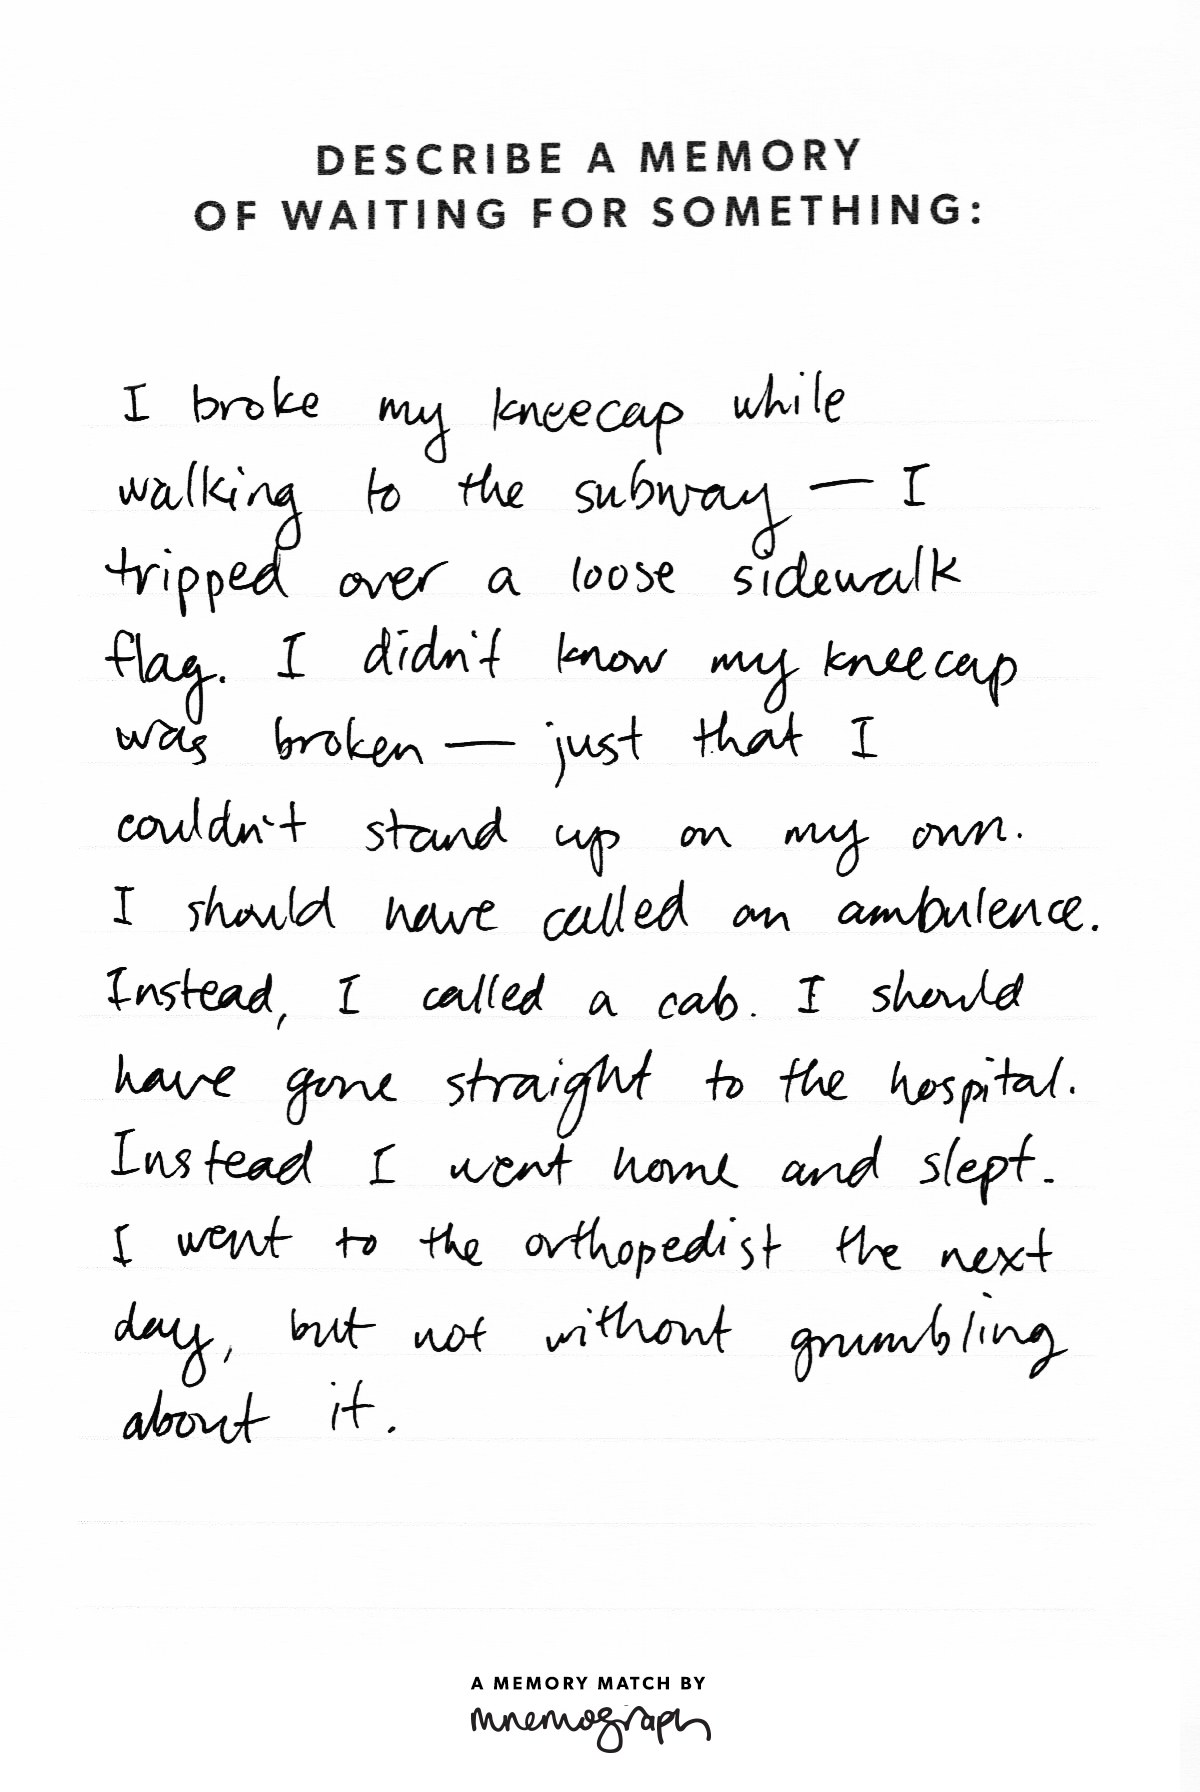 DESCRIBE A MEMORY
OF WAITING FOR SOMETHING:
I broke my kneecap while
walking to the subway — I
tripped over a loose sidewalk
flag. I didn't know my kneecap
was broken — just that I
couldn't stand up on my own.
I should have called an ambulence.
Instead, I called a cab. I should
have gone straight to the hospital.
Instead I went home and slept.
I went to the orthopedist the next
day, but not without grumbling
about it.
A MEMORY MATCH BY
mnemograph